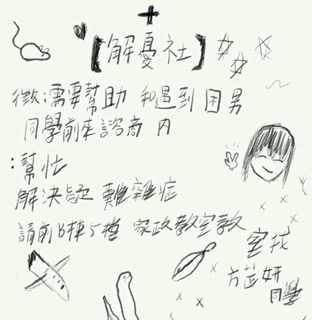 【解憂社】
徵:需要幫助 和遇到 困男
同學前來諮商 內
:幫忙
解決疑 難雜症
請前B棟5樓 家政教室教
室找
方芷妍
同學